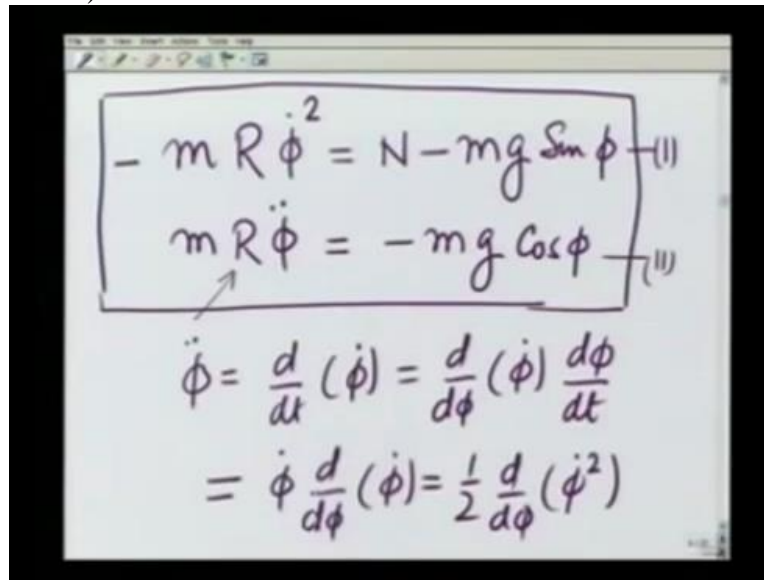 - m R φ̇² = N - mg Sin φ -(I)
m R φ̈ = - mg Cos φ -(II)
φ̈ = d/dt (φ̇) = d/dφ (φ̇) dφ/dt
= φ̇ d/dφ (φ̇) = 1/2 d/dφ (φ̇²)